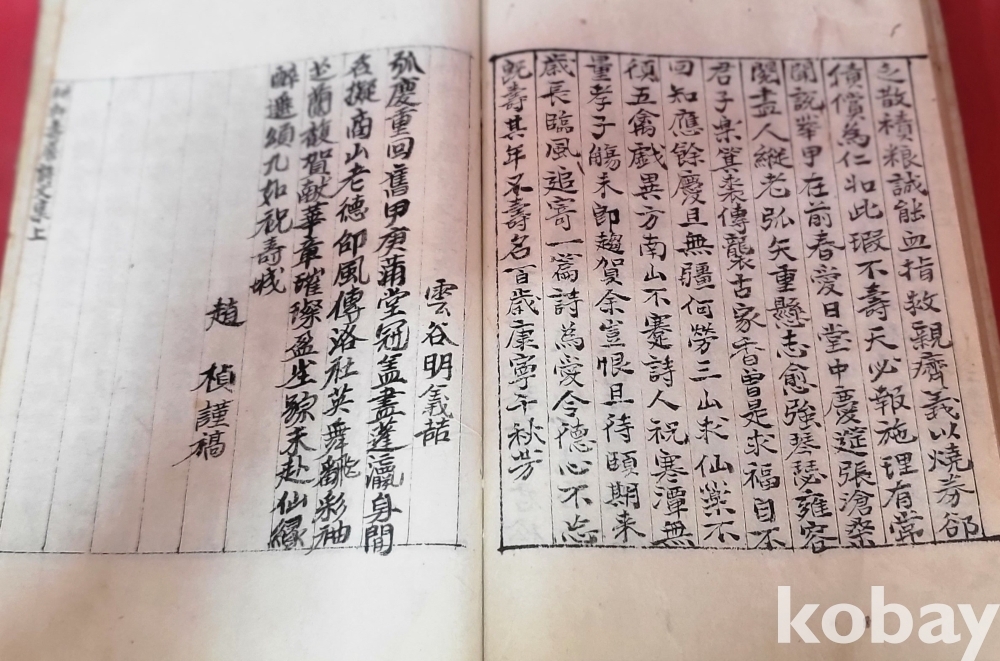 之散積粮誠能血指救親癠義以燒券郤
債償為仁如此瑕不壽天必報施理有常
聞說舉甲在前春愛日堂中慶筵張滄桑
閱盡人縱老弧矢重懸志愈強琴瑟雍容
君子樂箕裘傳襲古家香曾是求福自不
回知應餘慶且無疆何勞三山求仙藥不
須五禽戲異方南山不騫詩人祝寒潭無
量孝子觴未卽趍賀余豈恨且待頤期來
歲長臨風追寄一篇詩為愛令德心不忘
旣壽其年又壽名百歲康寧千秋芳
雲谷明義喆
弧慶重回舊甲庚蒲堂冠盖盡蓬瀛身閒
擬商山老德卲風傳洛社英舞翻彩袖
芝蘭馥賀献華章璀璨盈生未赴仙緣
醉遞頌九如祝壽城
趙 楨 謹稿
詩文集上
kobay